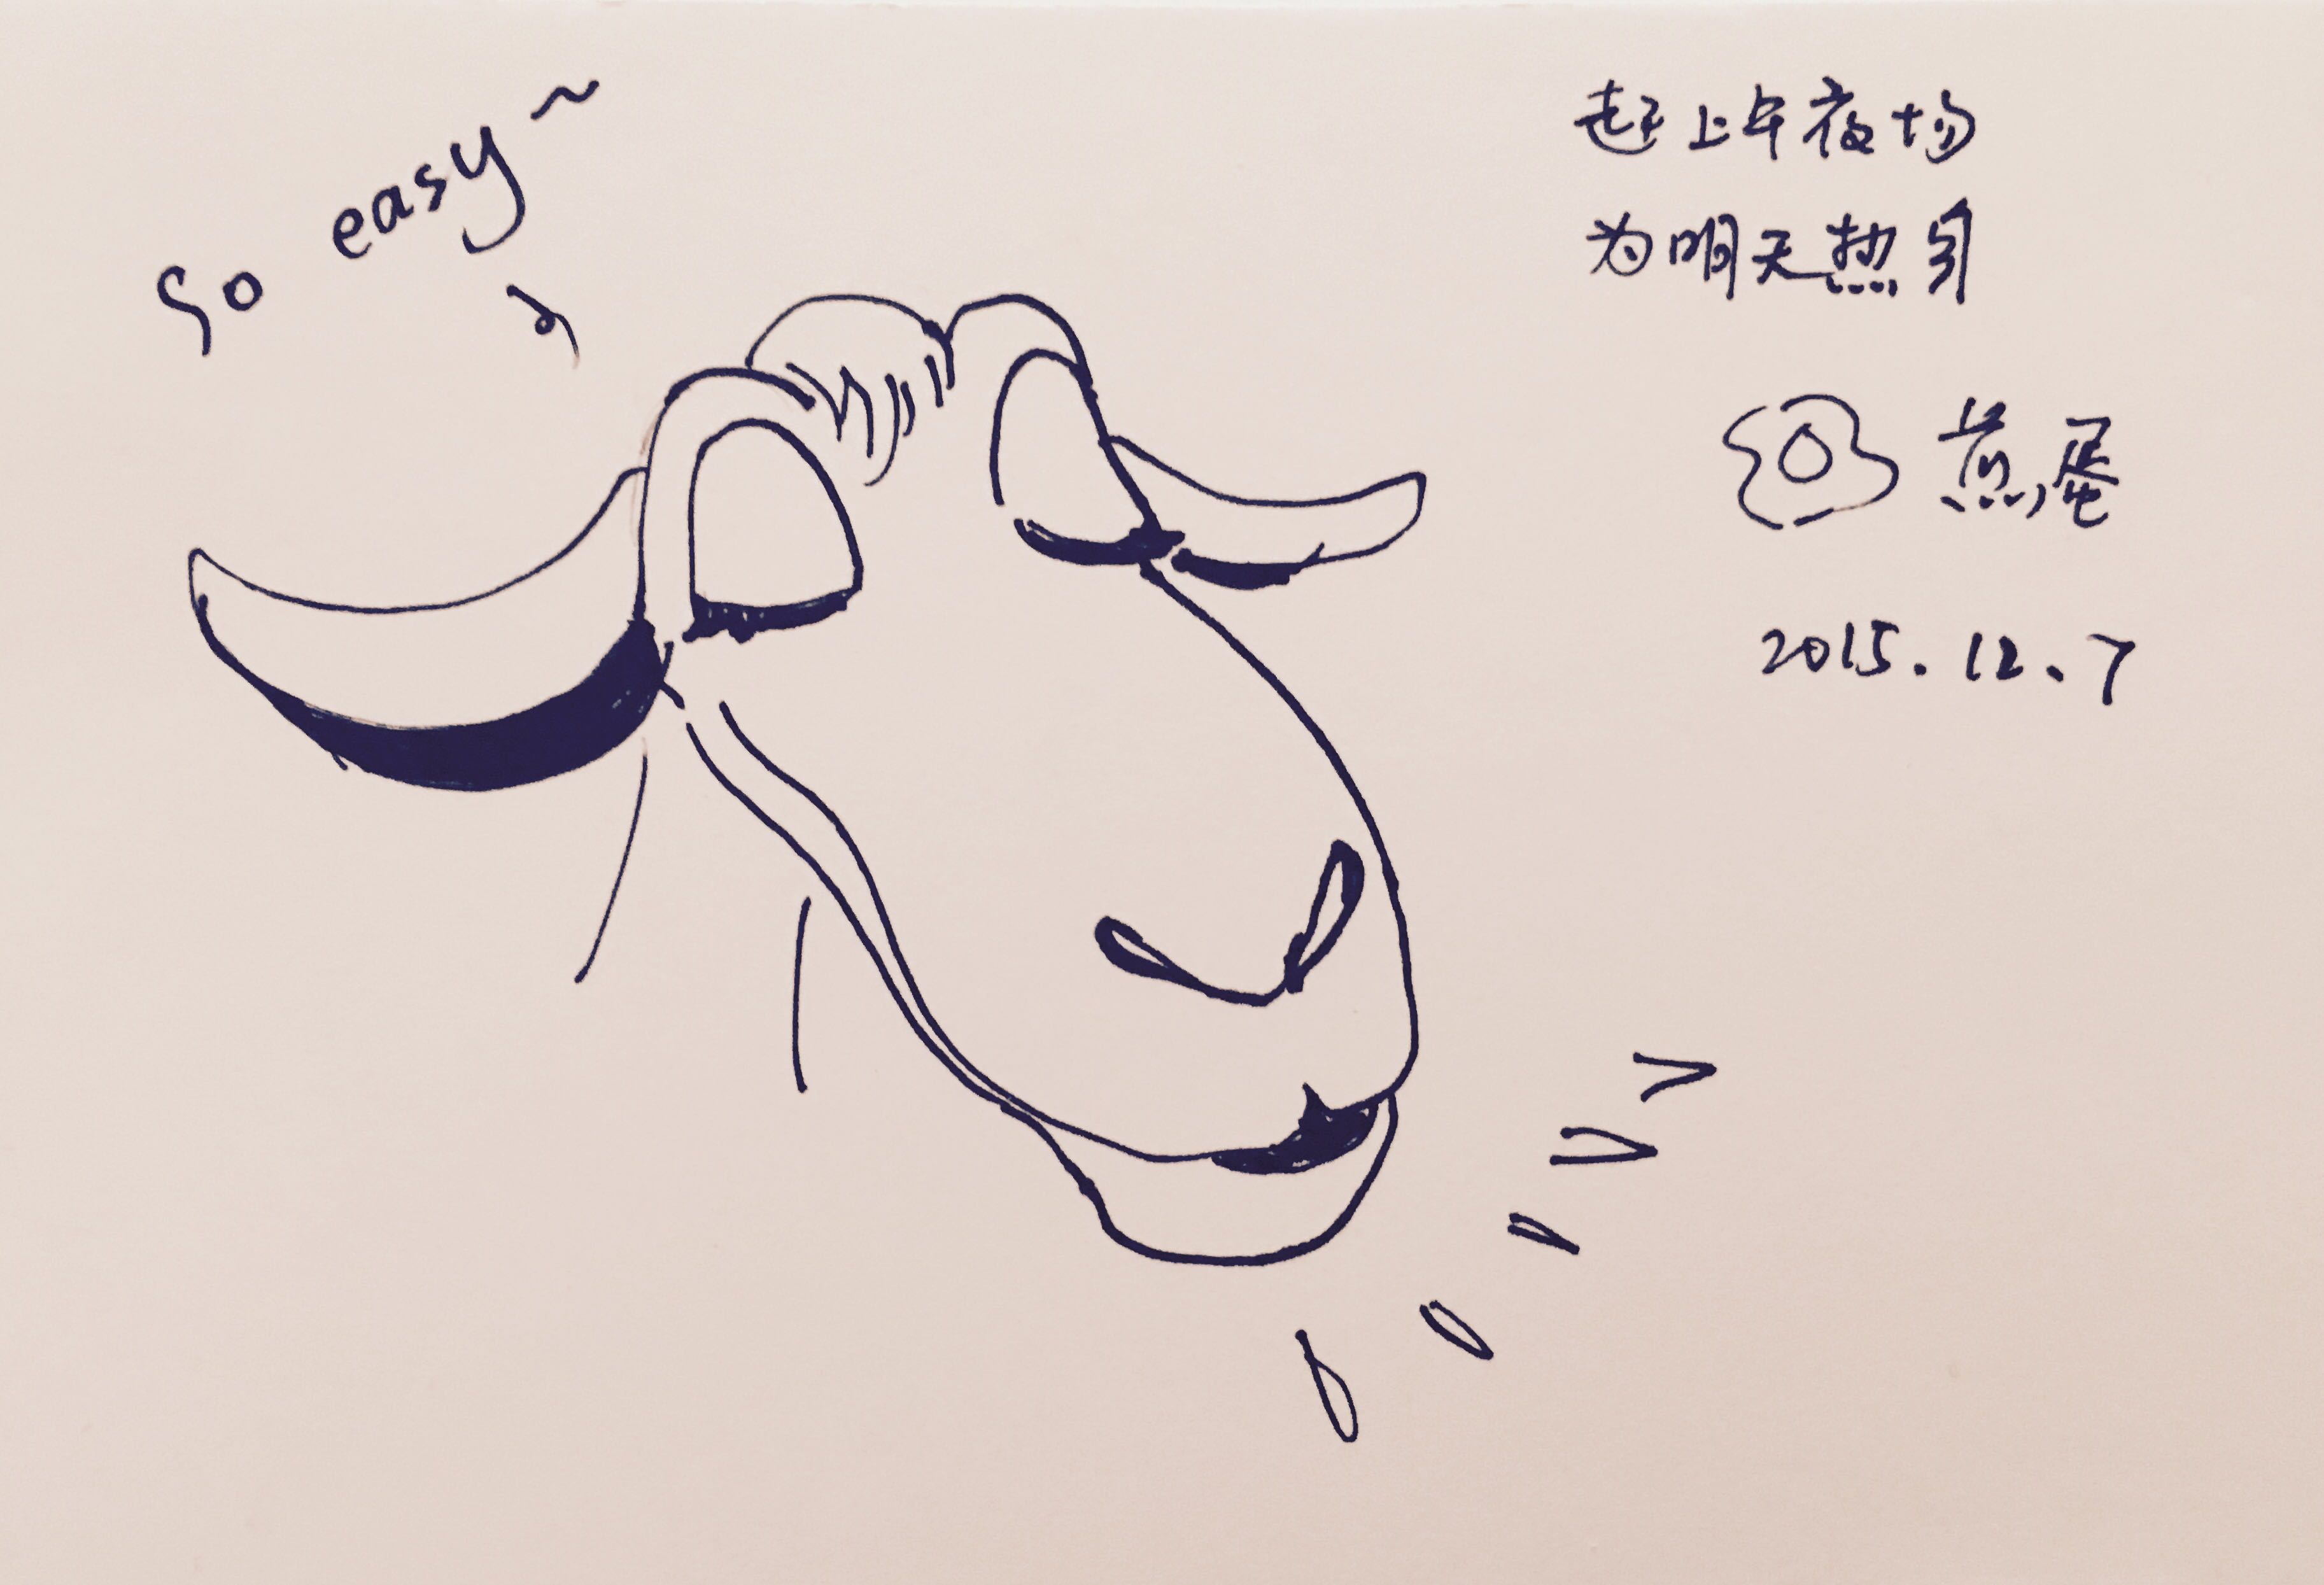 So easy~
赶上午夜场
为明天热身
煎蛋
2015.12.7